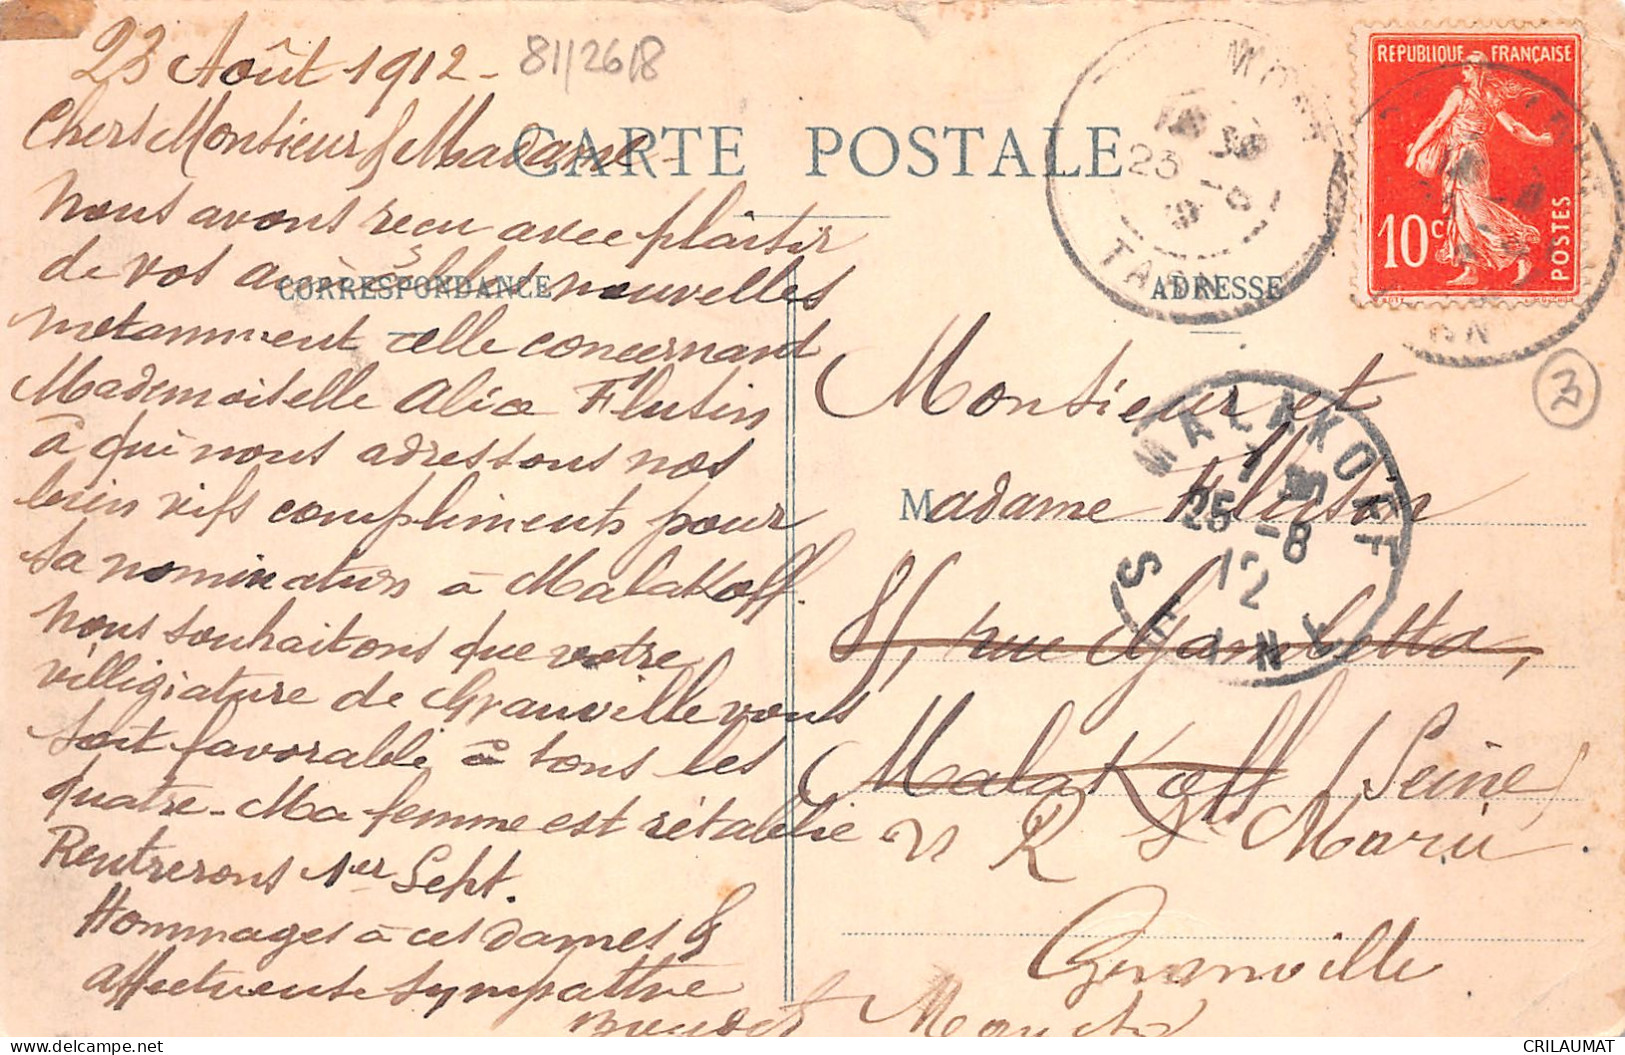 23 Août 1912 -
81/2618
Chers Monsieur & Madame -
CARTE POSTALE
Nous avons reçu avec plaisir
de vos nouvelles
CORRESPONDANCE
notamment celle concernant
Mademoiselle Alice Flutin
à qui nous adressons nos
bien vifs compliments pour
sa nomination à Malakoff.
Nous souhaitons que votre
villégiature de Granville vous
soit favorable à tous les
quatre - Ma femme est rétablie
Rentrerons 1er Sept.
Hommages à ces dames &
affectueuse sympathie
ADRESSE
REPUBLIQUE FRANÇAISE
10c
POSTES
23 -8
TARN
3
Monsieur et
Madame Flutin
81, rue Gambetta,
Malakoff (Seine)
MALAKOFF
25 -8
12
SEINE
R Ste Marie
Granville
Manche
CRILAUMAT